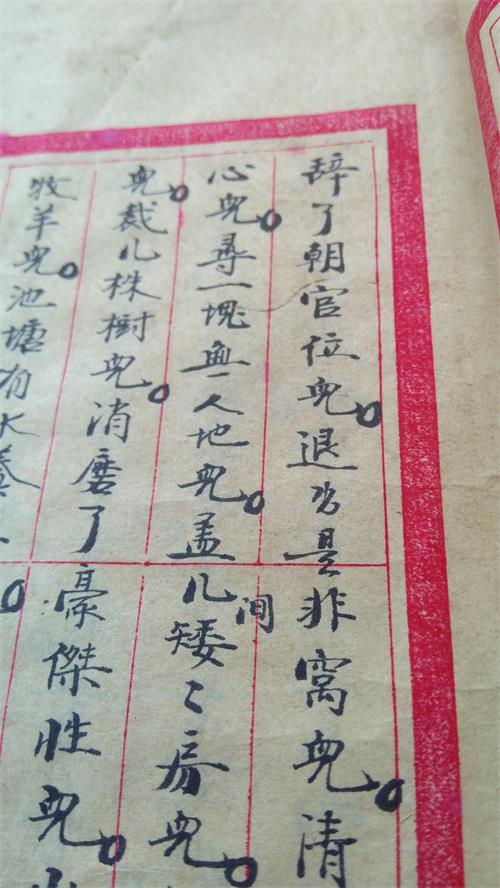 辞了朝官位兒。退出是非窩兒。清
心兒。尋一塊無人地兒。盖几间矮々房兒。
兒。裁几株樹兒。消磨了豪傑性兒。
牧羊兒。池塘有水養